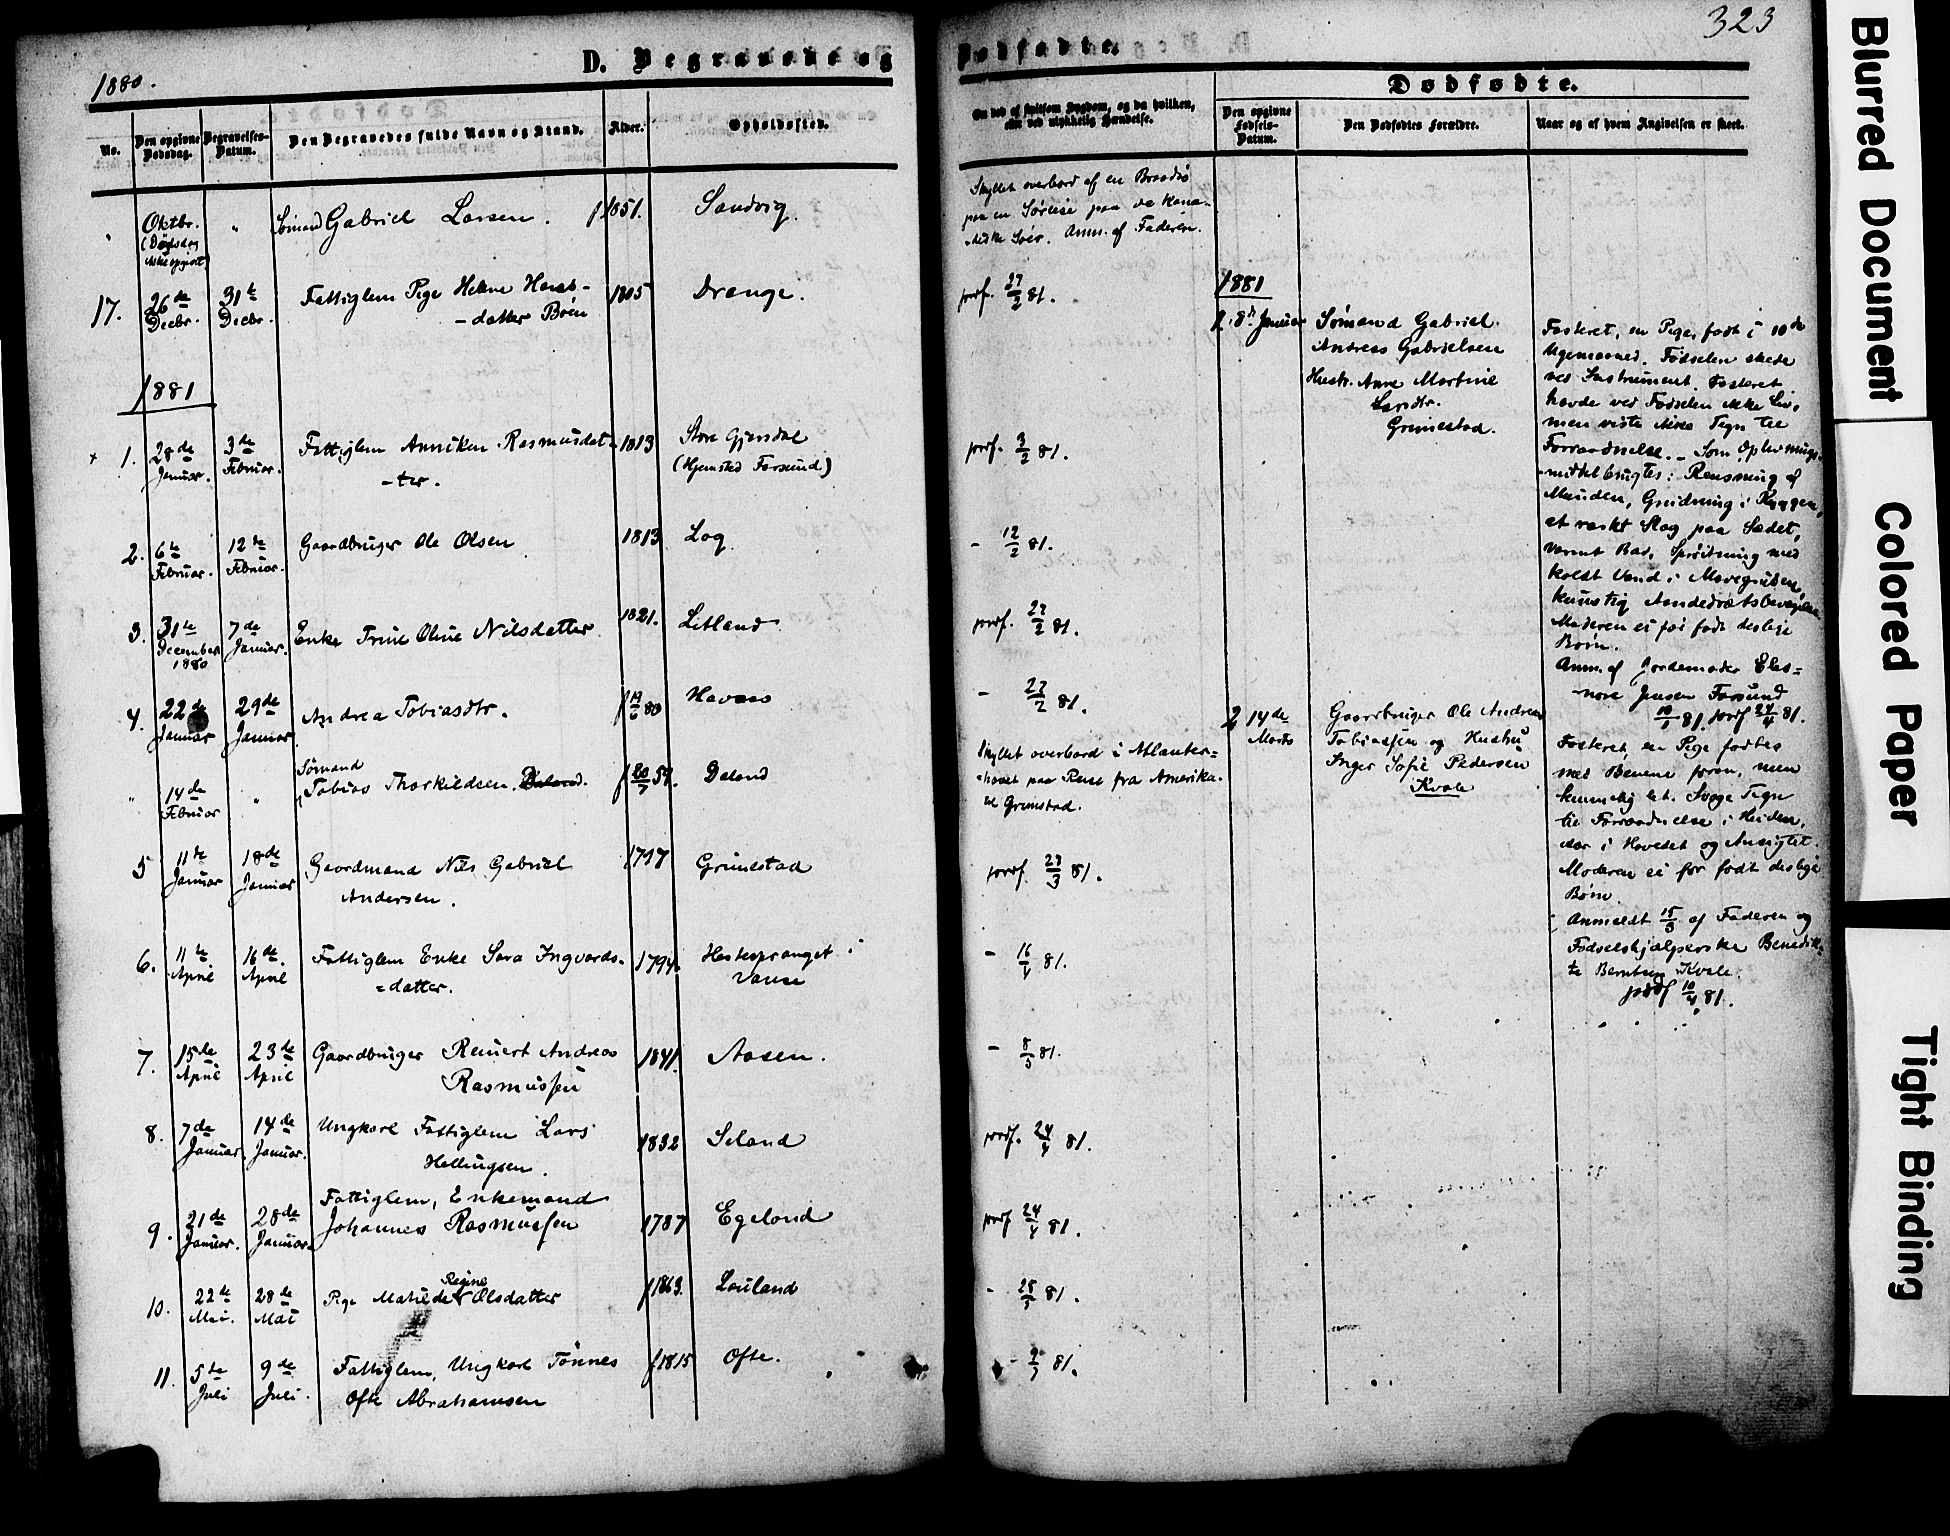 323
1880.
D. Begravede og
Dødfødte.
No.
Den opgivne Dødsdag.
Begravelses-Datum.
Den Begravedes fulde Navn og Stand.
Alder.
Opholdssted.
Om død af smitsom Sygdom, og da hvilken,
eller ved ulykkelig Hændelse.
Dødfødte.
Den opgivne Fødsels-Datum.
Den Dødfødtes Forældre.
Naar og af hvem Angivelsen er skeet.
" Oktbr. " Sømand Gabriel Larsen. f 1851. Sandvig.
(Dødsdag
ikke opgivet)
Skyllet overbord af en Braadsø
paa en Sørejse paa de Kana-
diske Søer. Anm. af Faderen.
17. 26de Decbr. 31te Decbr. Fattiglem Pige Helene
-datter Böen 1805 Drange.
prof. 27/2 81.
1881
1. 28de Januar. 3de Februar. Fattiglem Anniken Rasmusdat-
-ter. 1813 Store Gjersdal
(Hjemsted Farsund)
prof. 3/2 81.
2. 6te Februar. 12te Februar. Gaardbruger Ole Olsen 1813 Log
- 12/2 81.
3. 31te December 1880 7de Januar. Enke Trine Oline Nilsdatter 1821. Litland
prof. 27/2 81.
4. 22de Januar 29de Januar Andrea Tobiasdtr. f 80 Havaas
- 27/2 81.
" 14de Februar " Sømand
Tobias Thorkildsen. Daland. Daland
Skyllet overbord i Atlanter-
-havet paa Reise fra Amerika
til Grimstad.
5 11te Januar 18de Januar Gaardmand Nils Gabriel
Andersen. 1797 Grimestad
prof. 27/3 81.
6. 11te April 16de April Fattiglem Enke Sara Ingvards-
-datter. 1794. Hestespranget i
Vanse
- 16/4 81.
7. 15de April 23de April Gaardbruger Reinert Andreas
Rasmussen 1841. Aasen.
- 8/5 81.
8. 7de Januar 14de Januar. Ungkarl Fattiglem Lars
Hellingsen. 1832 Seland
prof. 24/4 81.
9. 21de Januar. 28de Januar. Fattiglem, Enkemand
Johannes Rasmussen 1787 Egeland
prof 24/4 81.
10. 22de Mai. 28de Mai Pige Matilde Regine Olsdatter f 1863. Louland
- 28/5 81.
11. 5te Juli 9de Juli. Fattiglem, Ungkarl Tønnes
Ofte Abrahamsen f 1815 Ofte.
81.
1881
1. 8de Januar Sømand Gabriel
Andreas Gabrielsen
Hustr. Anne Martine
Larsdtr.
Grimestad.
Fosteret, en Pige, født i 10de
Ugemaaned. Fødselen skede
ved Instrument. Fosteret
havde ved Fødselen ikke Liv,
men viste ikke Tegn til
Forraadnelse. - Som Oplivnings-
-middel brugtes: Rensning af
Munden, Gnidning i Ryggen,
et raskt Slag paa Sædet,
varmt Bad, Sprøitning med
koldt Vand i Mavegruben
kunstig Aandedrætsbevægelse
Moderen ei før født deslige
Børn.
Anm. af Jordemoder Eleo-
-nore Jensen Farsund
10/1 81. prof 24/4 81.
2 14de Marts Gaardbruger Ole Andreas
Tobiassen og Hustru
Inger Sofie Pedersen
Kvale
Fosteret en Pige fødtes
med Benene foran, men
kjendelig let. Svage Tegn
til Forraadnelse i Huden,
især i Hovedet og Ansigtet.
Moderen ei før født deslige
Børn.
Anmeldt 15/3 af Faderen og
Fødselshjælperske Benedik-
te Berntsen Kvale.
prof 10/4 81.
Blurred Document
Colored Paper
Tight Binding